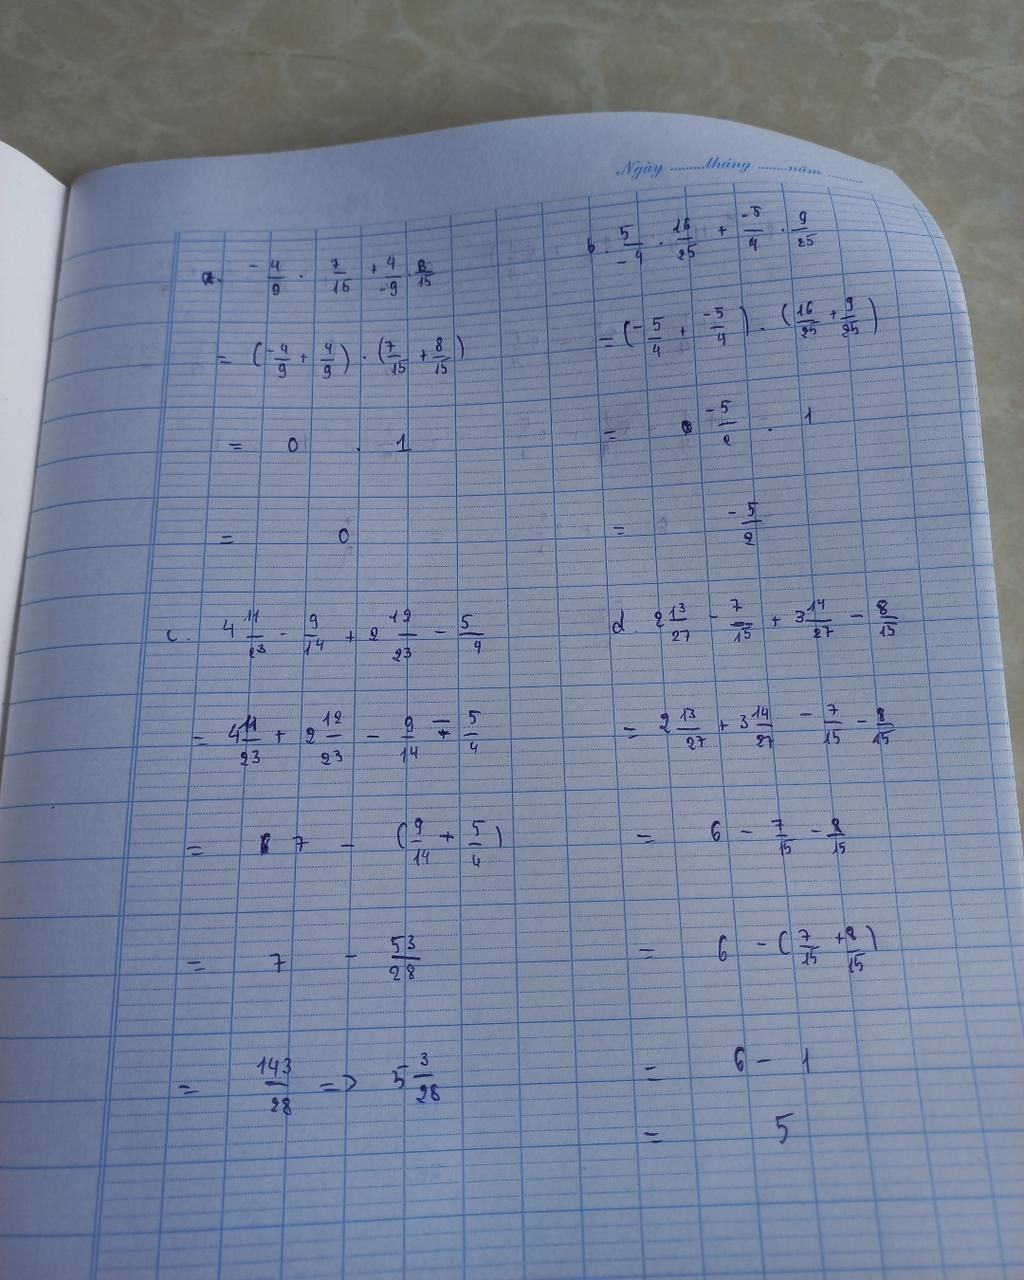 Ngày ........tháng .......năm ........
a. -4/9 . 7/15 + 4/-9 . 8/15
= (-4/9 + 4/9) . (7/15 + 8/15)
= 0 . 1
= 0
b. 5/-4 . 16/25 + -5/4 . 9/25
= (-5/4 + -5/4) . (16/25 + 9/25)
= -5/2 . 1
= -5/2
c. 4 11/23 - 9/14 + 2 12/23 - 5/4
= 4 11/23 + 2 12/23 - 9/14 - 5/4
= 7 - (9/14 + 5/4)
= 7 - 53/28
= 143/28 => 5 3/28
d. 2 13/27 - 7/15 + 3 14/27 - 8/15
= 2 13/27 + 3 14/27 - 7/15 - 8/15
= 6 - 7/15 - 8/15
= 6 - (7/15 + 8/15)
= 6 - 1
= 5